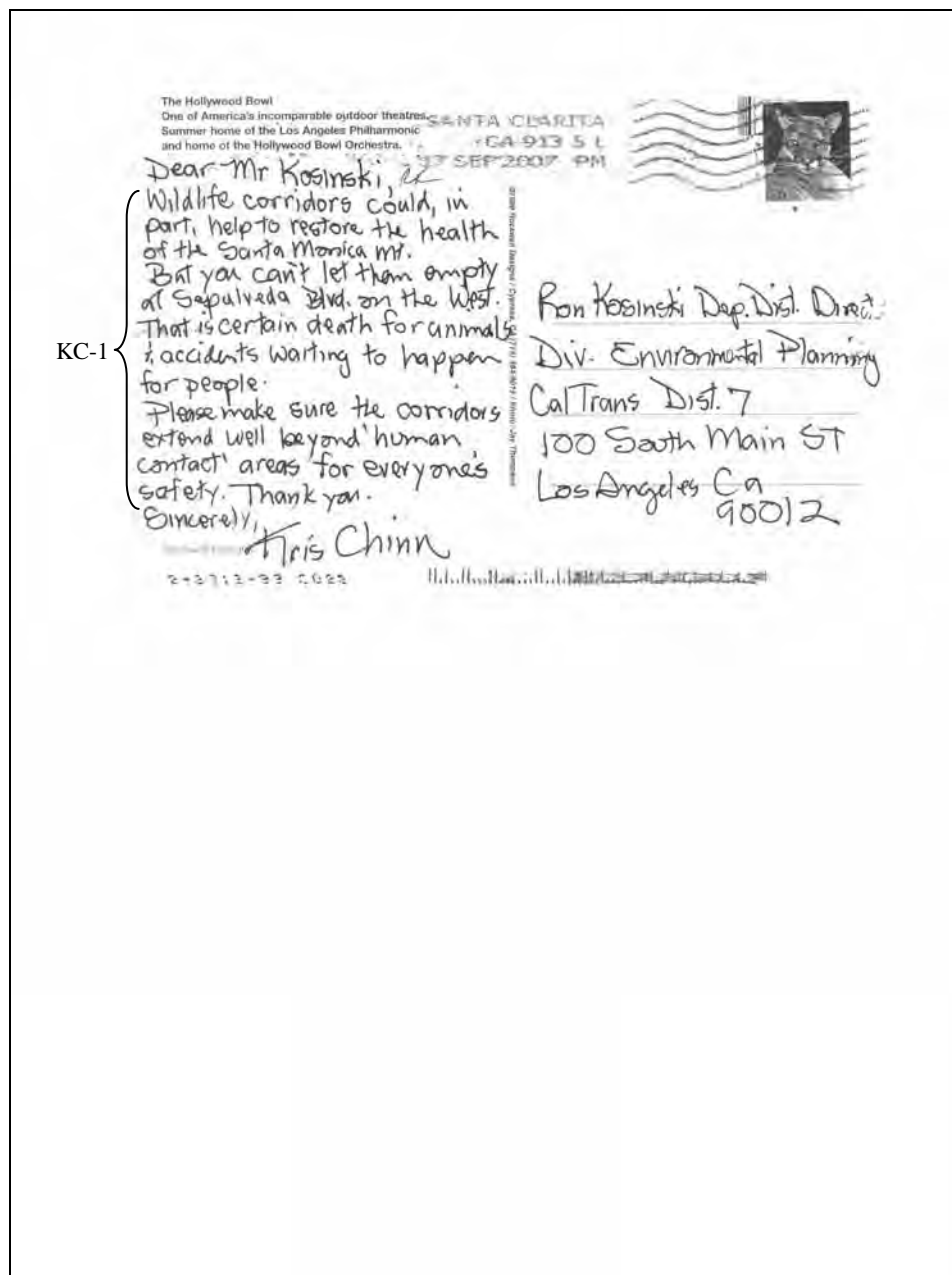 The Hollywood Bowl
One of America's incomparable outdoor theatres.
Summer home of the Los Angeles Philharmonic
and home of the Hollywood Bowl Orchestra.
SANTA CLARITA
CA 913 5 L
SEP 2007 PM
Dear Mr Kosinski,
Wildlife corridors could, in
part, help to restore the health
of the Santa Monica Mt.
But you can't let them empty
at Sepulveda Blvd. on the West.
That is certain death for animals
& accidents waiting to happen
for people.
Please make sure the corridors
extend well beyond 'human
contact' areas for everyone's
safety. Thank you.
Sincerely,
Kris Chinn
KC-1
Ron Kosinski Dep. Dist. Direct.
Div. Environmental Planning
CalTrans Dist. 7
100 South Main ST
Los Angeles Ca
90012